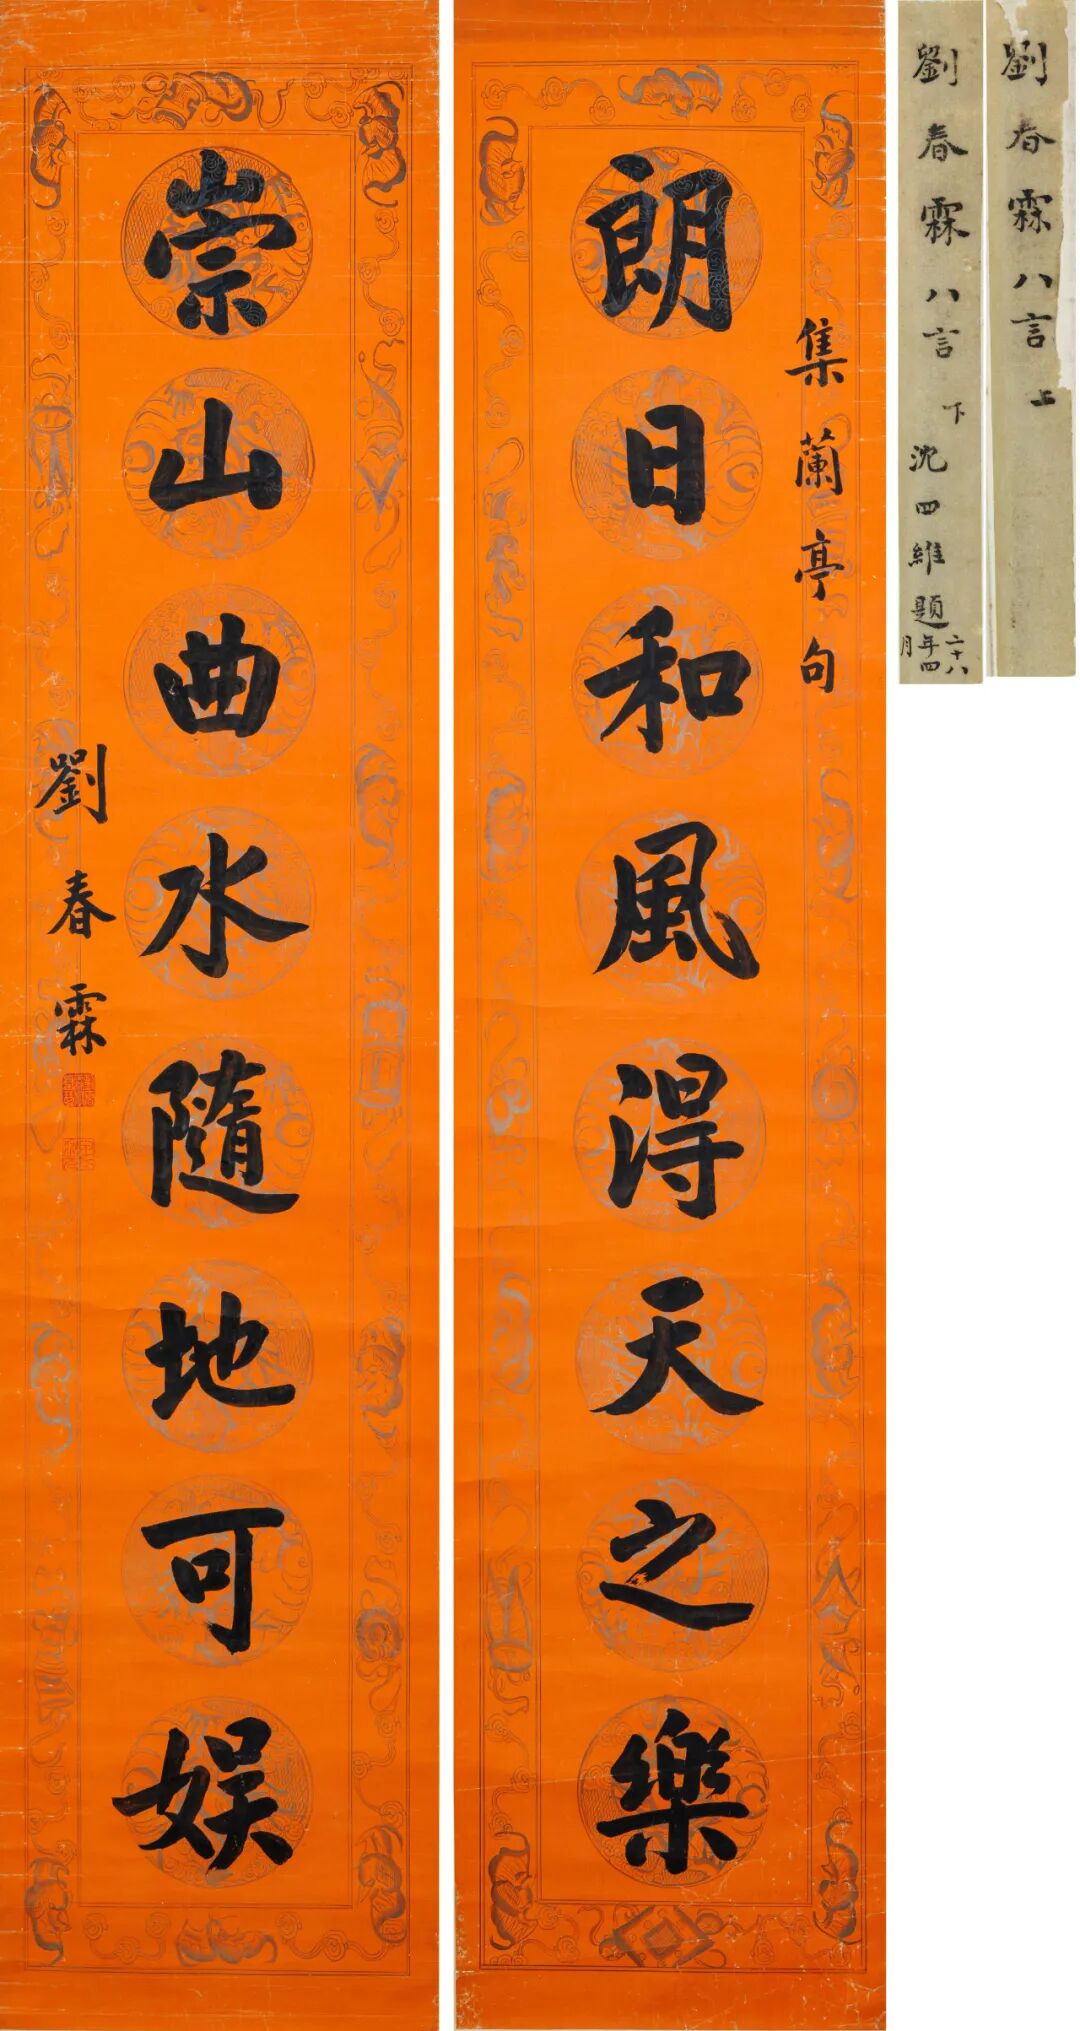 集蘭亭句
朗日和風得天之樂
崇山曲水隨地可娱
劉春霖
劉春霖八言 上
劉春霖八言 下 沈四維題
二十八
年四
月